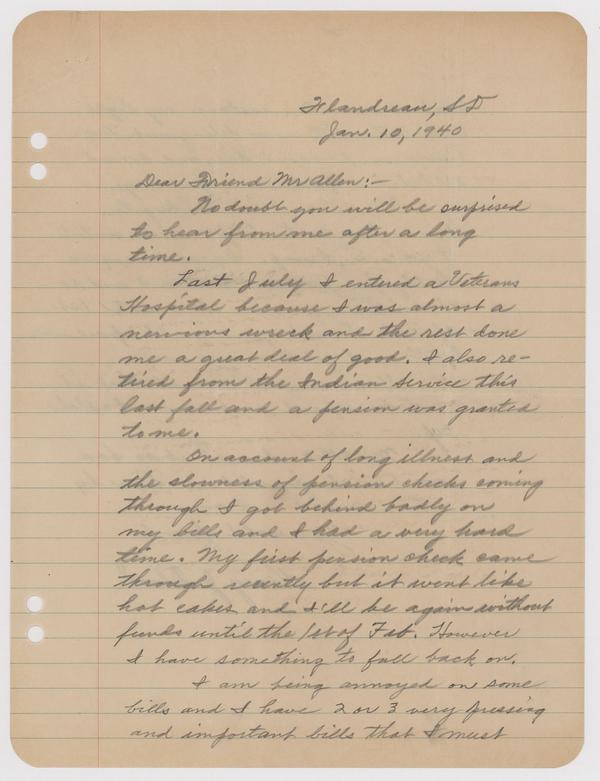 Flandreau, SD
Jan. 10, 1940
Dear Friend Mr Allen:-
No doubt you will be surprised
to hear from me after a long
time.
Last July I entered a Veterans
Hospital because I was almost a
nervious wreck and the rest done
me a great deal of good. I also re-
tired from the Indian Service this
last fall and a pension was granted
to me.
On account of long illness and
the slowness of pension checks coming
through I got behind badly on
my bills and I had a very hard
time. My first pension check came
through recently but it went like
hot cakes and I'll be again without
funds until the 1st of Feb. However
I have something to fall back on.
I am being annoyed on some
bills and I have 2 or 3 very pressing
and important bills that I must